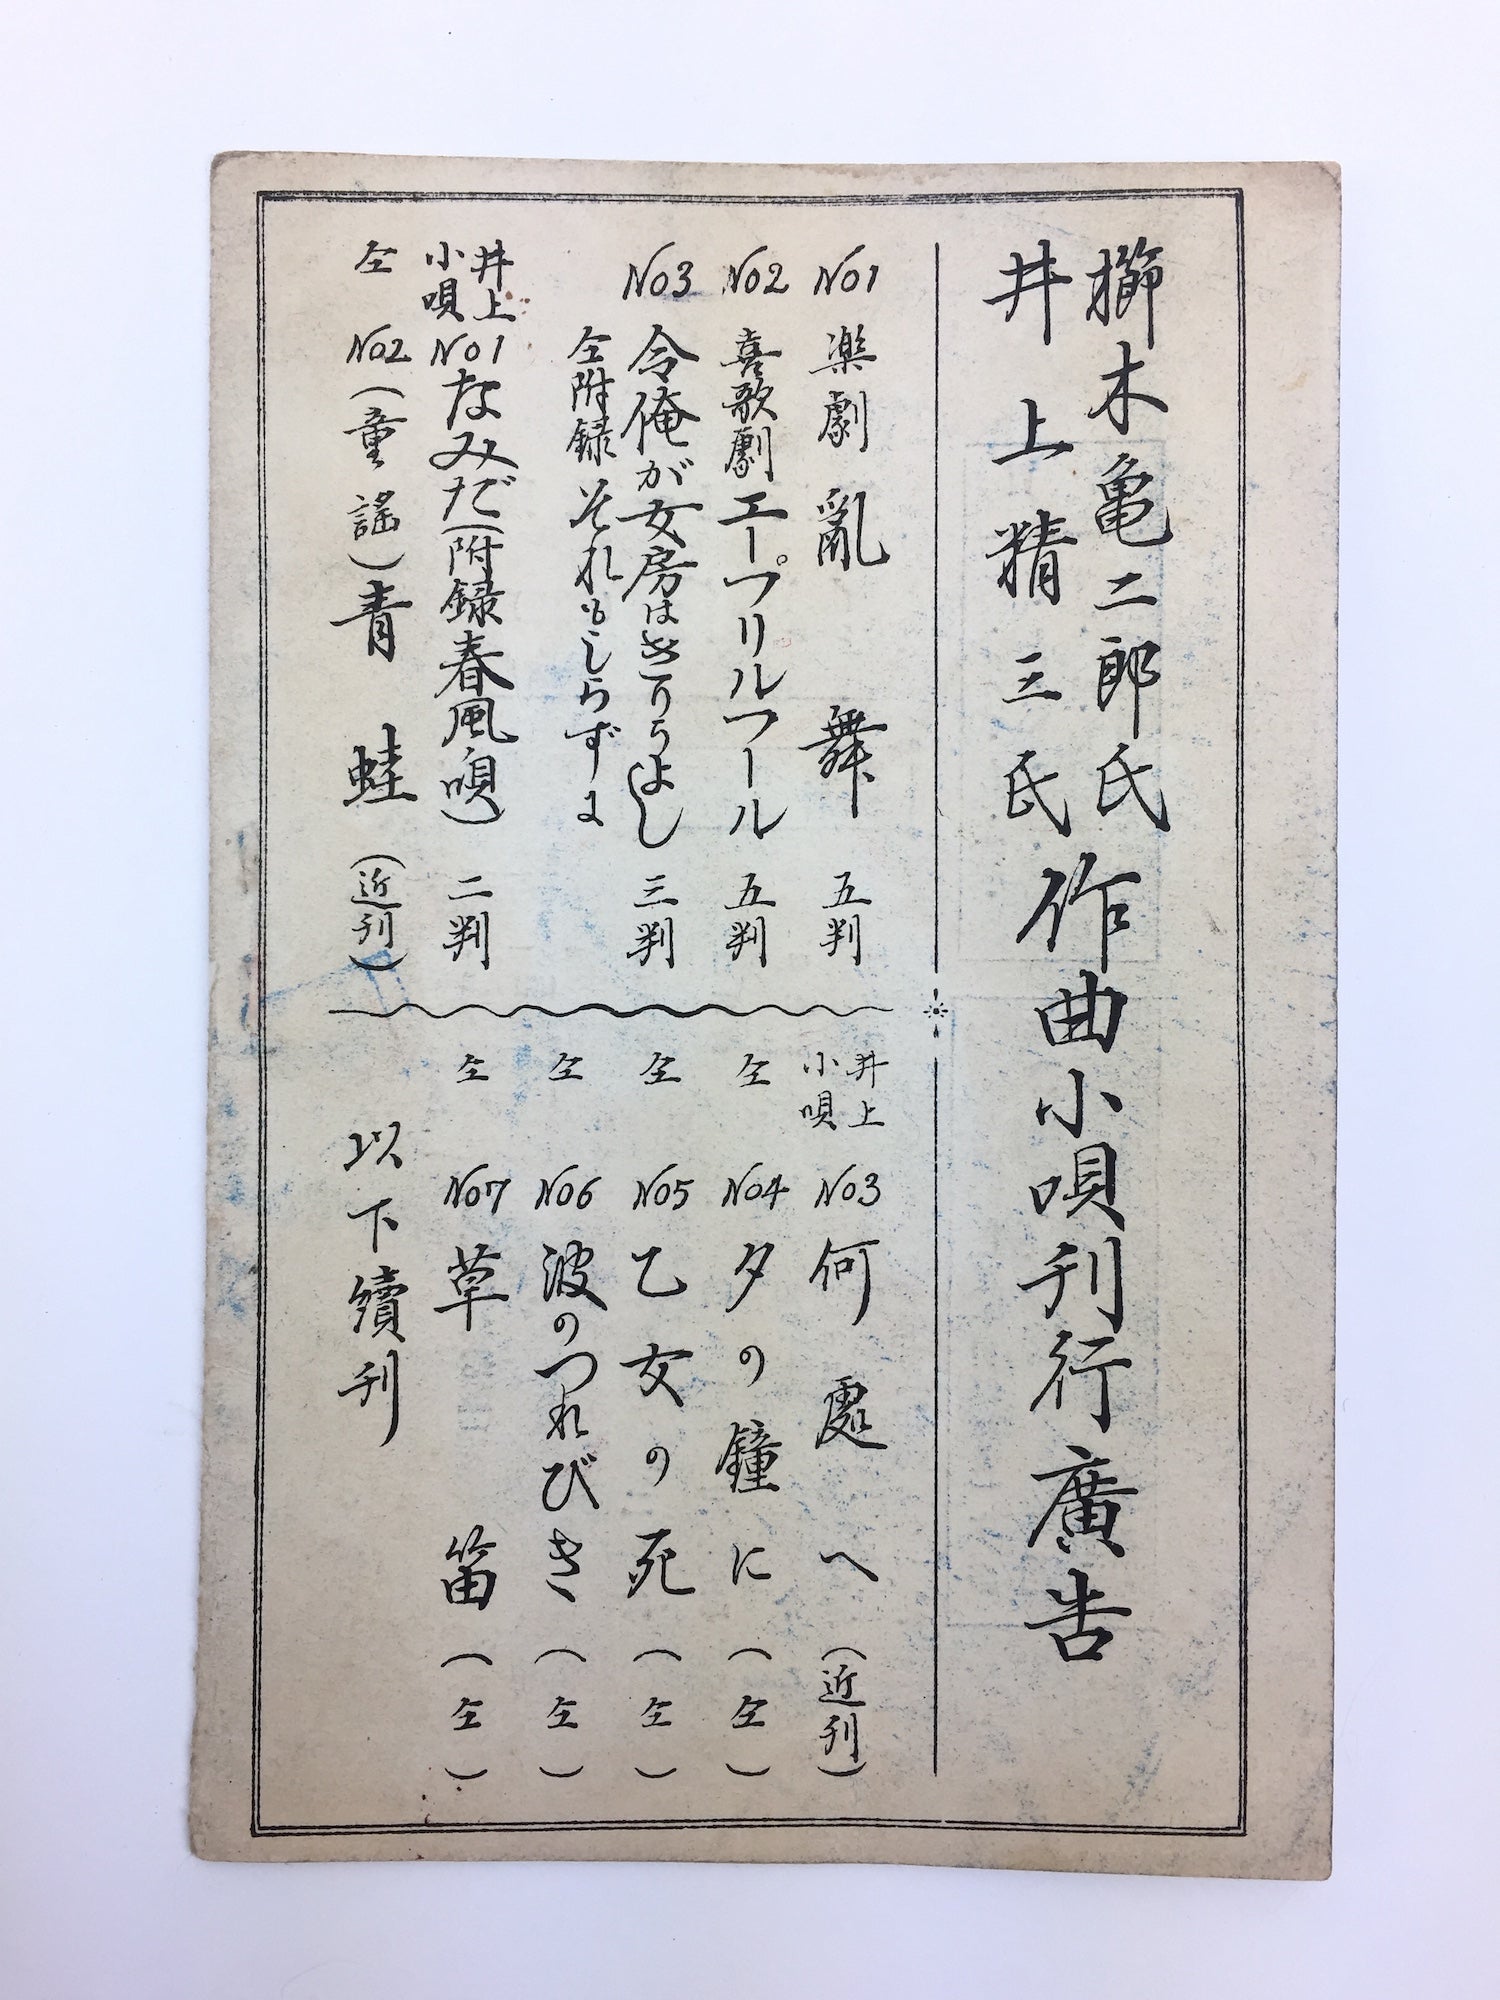 櫛木亀二郎氏
井上精三氏
作曲小唄刊行廣告
No1 楽劇 亂舞 五判
No2 喜歌劇 エープリルフール 五判
No3 令俺が女房はきりうよし 三判
仝附録 それもしらずに
井上小唄 No1 なみだ(附録春風唄) 二判
仝 No2 (童謡)青蛙 (近刊)
井上小唄 No3 何處へ (近刊)
仝 No4 夕の鐘に (仝)
仝 No5 乙女の死 (仝)
仝 No6 波のつれびき (仝)
仝 No7 草笛 (仝)
以下續刊